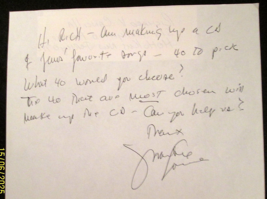 Hi Rich - Am making up a CD
of fans' favorite songs - 40 to pick
What 40 would you choose?
The 40 that are most chosen will
make up the CD - Can you help us?
Thanx